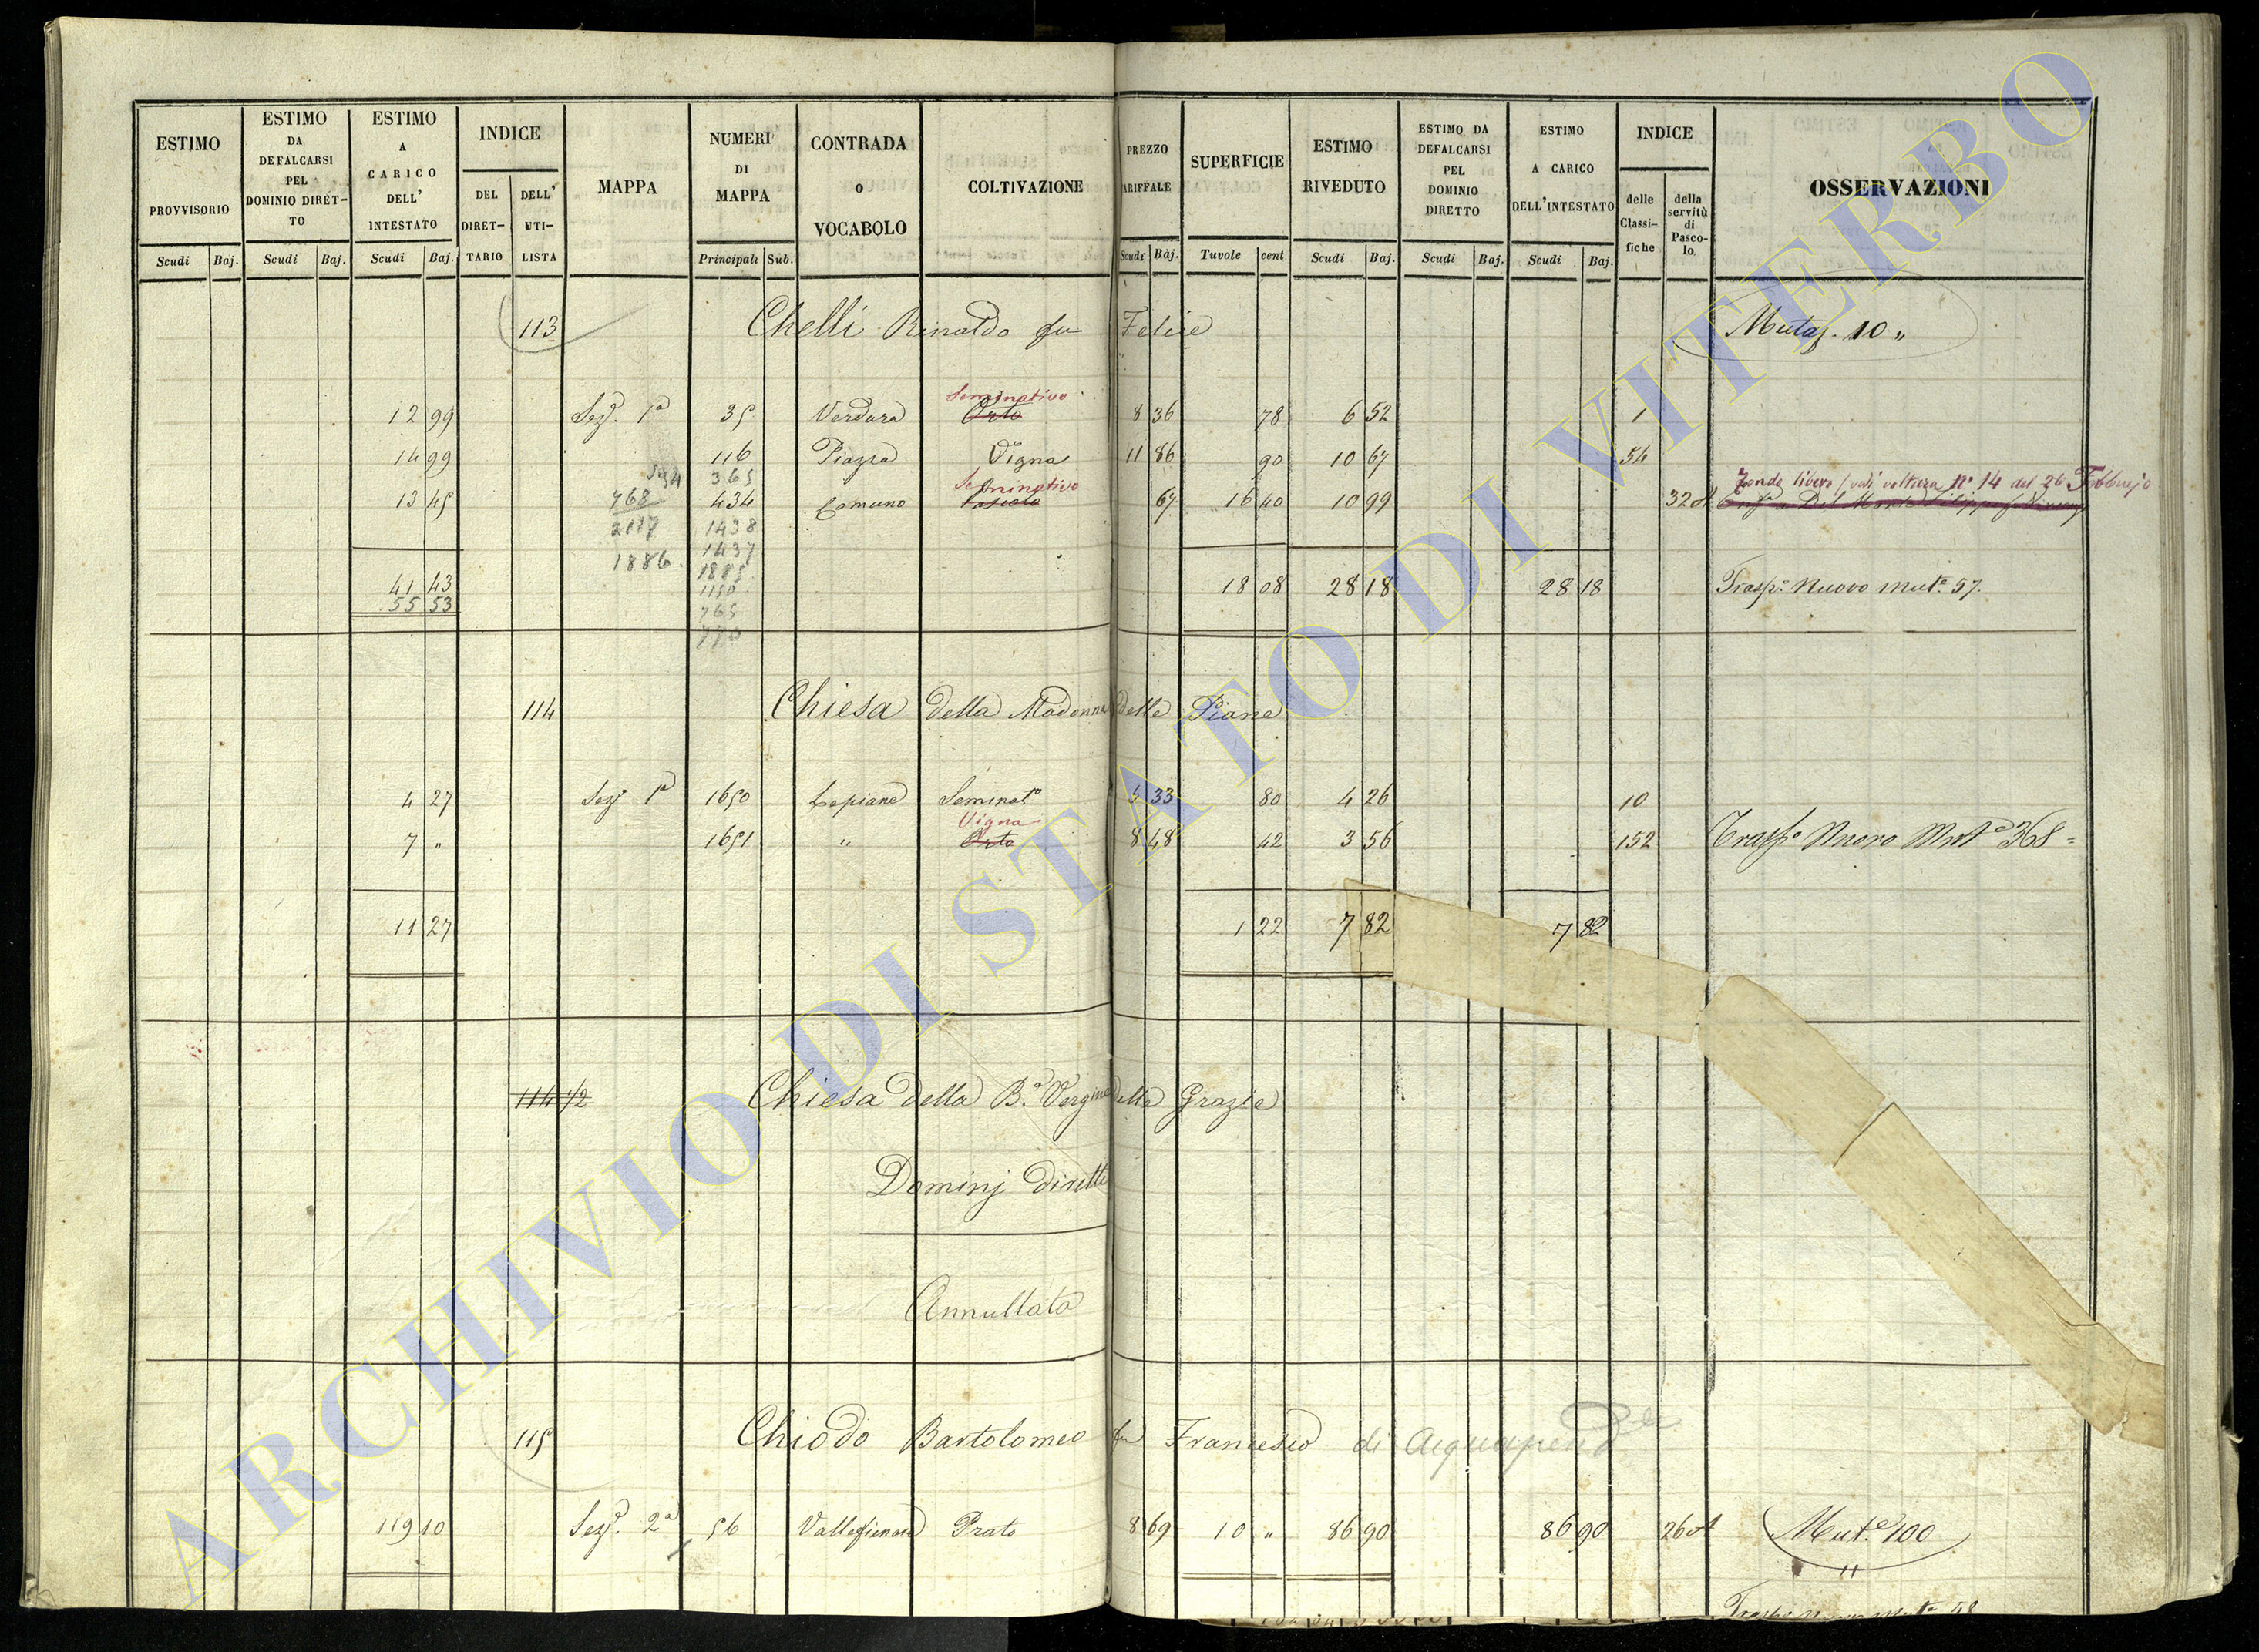 ESTIMO PROVVISORIO ESTIMO DA DEFALCARSI PEL DOMINIO DIRETTO ESTIMO A CARICO DELL' INTESTATO INDICE DEL DIRETTARIO DELL' UTILISTA MAPPA NUMERI DI MAPPA CONTRADA O VOCABOLO COLTIVAZIONE PREZZO TARIFFALE SUPERFICIE ESTIMO RIVEDUTO ESTIMO DA DEFALCARSI PEL DOMINIO DIRETTO ESTIMO A CARICO DELL'INTESTATO INDICE delle Classifiche della servitù di Pascolo OSSERVAZIONI
Scudi Baj. Scudi Baj. Scudi Baj. Principali Sub. Scudi Baj. Tavole cent Scudi Baj. Scudi Baj. Scudi Baj.
113 Chelli Rinaldo fu Felice Mutaz. 10 "
Seminativo
12 99 Sez. 1a 35 Verdura Orto 8 36 78 6 52 1
14 99 116 Piazza Vigna 11 86 90 10 67 54
365
Seminativo
Fondo libero / vedi voltura No 14 del 26 Febbrajo
13 45 768 434 Comuno Pascolo 67 16 40 10 99 32
2117 1438
1437
1886 1885
41 43 1150 18 08 28 18 28 18 Trasp. Nuovo Mut. 57.
55 53 765
770
114 Chiesa della Madonna delle Piane
4 27 Sez. 1a 1650 Lepiane Seminato 5 33 80 4 26 10
Vigna
7 " 1651 " Orto 8 48 42 3 56 152 Trasp. Nuovo Mut. 368 =
11 27 1 22 7 82 7 82
114 1/2 Chiesa della Ba. Vergine delle Grazie
Dominj diretti
Annullata
115 Chiodo Bartolomeo fu Francesco di Acquapend
119 10 Sez. 2a 56 Prato 8 69 10 " 86 90 86 90 26 Mut. 100
"
Trasp. Nuovo Mut. 58
ARCHIVIO DI STATO DI VITERBO